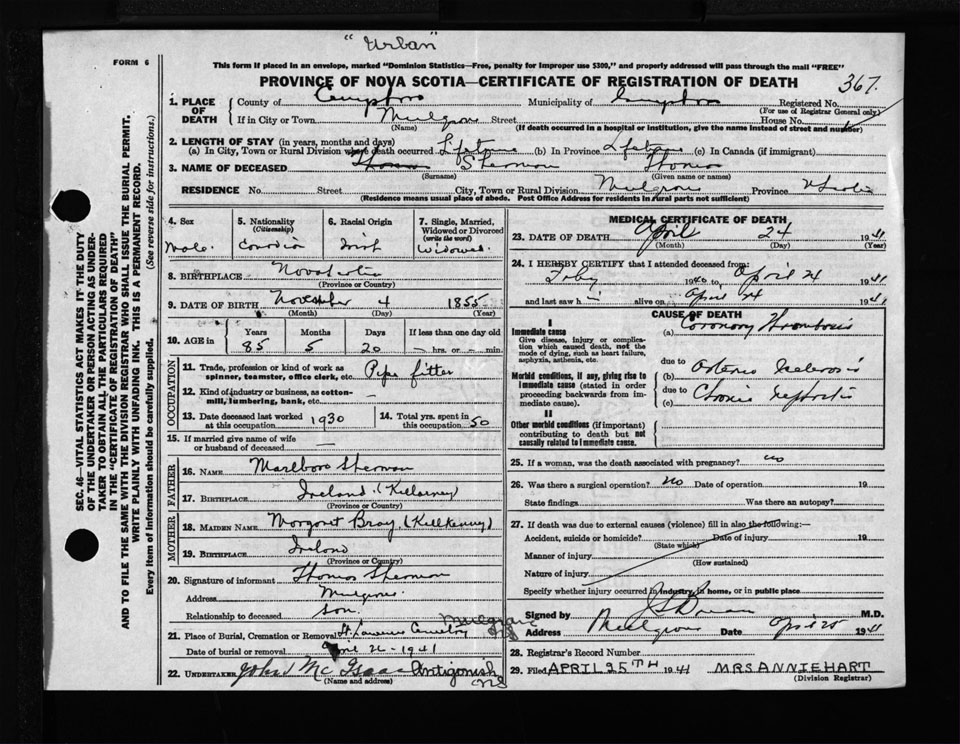 "Urban"
FORM 6
This form if placed in an envelope, marked "Dominion Statistics—Free, penalty for improper use $300", and properly addressed will pass through the mail "FREE"
PROVINCE OF NOVA SCOTIA—CERTIFICATE OF REGISTRATION OF DEATH 367.
1. PLACE OF DEATH
County of Municipality of Registered No.
(For use of Registrar General only)
If in City or Town Mulgrave Street House No.
(Name) (If death occurred in a hospital or institution, give the name instead of street and number)
2. LENGTH OF STAY (in years, months and days)
(a) In City, Town or Rural Division where death occurred Lifetime (b) In Province Lifetime (c) In Canada (if immigrant)
3. NAME OF DECEASED Sherman Thomas
(Surname) (Given name or names)
RESIDENCE No. Street City, Town or Rural Division Mulgrave Province N Scotia
(Residence means usual place of abode. Post Office Address for residents in rural parts not sufficient)
4. Sex Male
5. Nationality (Citizenship) Canadian
6. Racial Origin Irish
7. Single, Married, Widowed or Divorced (write the word) Widowed
8. BIRTHPLACE Nova Scotia
(Province or Country)
9. DATE OF BIRTH November 4 1855
(Month) (Day) (Year)
10. AGE in Years Months Days If less than one day old
85 5 20 — hrs. or — min.
OCCUPATION
11. Trade, profession or kind of work as spinner, teamster, office clerk, etc. Pipe fitter
12. Kind of industry or business, as cotton-mill, lumbering, bank, etc. —
13. Date deceased last worked at this occupation 1930
14. Total yrs. spent in this occupation 50
15. If married give name of wife or husband of deceased —
FATHER
16. NAME Marlboro Sherman
17. BIRTHPLACE Ireland (Killarney)
(Province or Country)
MOTHER
18. MAIDEN NAME Margaret Bray (Kilkenny)
19. BIRTHPLACE Ireland
(Province or Country)
20. Signature of informant Thomas Sherman
Address Mulgrave
Relationship to deceased Son
21. Place of Burial, Cremation or Removal St. Lawrence Cemetery Mulgrave NS
Date of burial or removal April 26-1941
22. UNDERTAKER John McIsaac Antigonish NS
(Name and address)
MEDICAL CERTIFICATE OF DEATH
23. DATE OF DEATH April 24 1941
(Month) (Day) (Year)
24. I HEREBY CERTIFY that I attended deceased from:
Feby 1940 to April 24 1941
and last saw h im alive on April 24 1941
CAUSE OF DEATH
I
Immediate cause (a) Coronary Thrombosis
Give disease, injury or complication which caused death, not the mode of dying, such as heart failure, asphyxia, asthenia, etc.
due to
Morbid conditions, if any, giving rise to immediate cause (stated in order proceeding backwards from immediate cause).
(b) Arterio Sclerosis
due to
(c) Chronic Nephritis
II
Other morbid conditions (if important) contributing to death but not causally related to immediate cause.
25. If a woman, was the death associated with pregnancy? no
26. Was there a surgical operation? no Date of operation 19
State findings Was there an autopsy?
27. If death was due to external causes (violence) fill in also the following:—
Accident, suicide or homicide? Date of injury 19
(State which)
Manner of injury
(How sustained)
Nature of injury
Specify whether injury occurred in industry, in home, or in public place
Signed by M.D.
Address Mulgrave Date April 25 1941
28. Registrar's Record Number
29. Filed APRIL 25TH 1941 MRS ANNIE HART
(Division Registrar)
SEC. 46—VITAL STATISTICS ACT MAKES IT THE DUTY
OF THE UNDERTAKER OR PERSON ACTING AS UNDER-
TAKER TO OBTAIN ALL THE PARTICULARS REQUIRED
IN THE "CERTIFICATE OF REGISTRATION OF DEATH"
AND TO FILE THE SAME WITH THE DIVISION REGISTRAR WHO SHALL ISSUE THE BURIAL PERMIT.
WRITE PLAINLY WITH UNFADING INK. THIS IS A PERMANENT RECORD.
Every item of information should be carefully supplied. (See reverse side for instructions.)